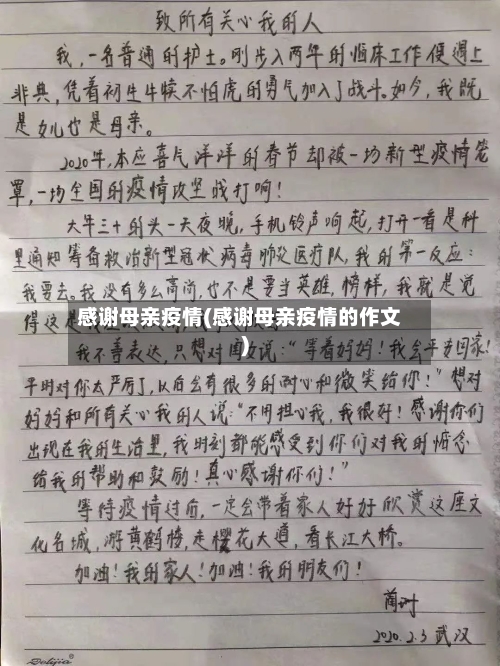 致所有关心我的人
我,一名普通的护士。刚步入两年的临床工作便遇上
非典,凭着初生牛犊不怕虎的勇气加入了战斗。如今,我既
是女儿也是母亲。
2020年,本应喜气洋洋的春节却被一场新型疫情笼
罩,一场全国的疫情攻坚战打响!
大年三十的头一天夜晚,手机铃声响起,打开一看是科
里通知筹备救治新型冠状病毒肺炎医疗队,我的第一反应:
我要去。我没有多么高尚,也不是要当英雄,榜样,我就是觉
得这是
感谢母亲疫情(感谢母亲疫情的作文
)
我不善表达,只想对闺女说:“等着妈妈!我会平安回家!
平时对你太严厉了,以后会有很多的耐心和微笑给你!”想对
妈妈和所有关心我的人说:“不用担心我,我很好!感谢你们
出现在我的生活里,我时刻都能感受到你们对我的惦念
给我的帮助和鼓励!真心感谢你们!”
等待疫情过后,一定会带着家人好好欣赏这座文
化名城,游黄鹤楼,走樱花大道,看长江大桥。
加油!我的家人!加油!我的朋友们!
2020.2.3 武汉